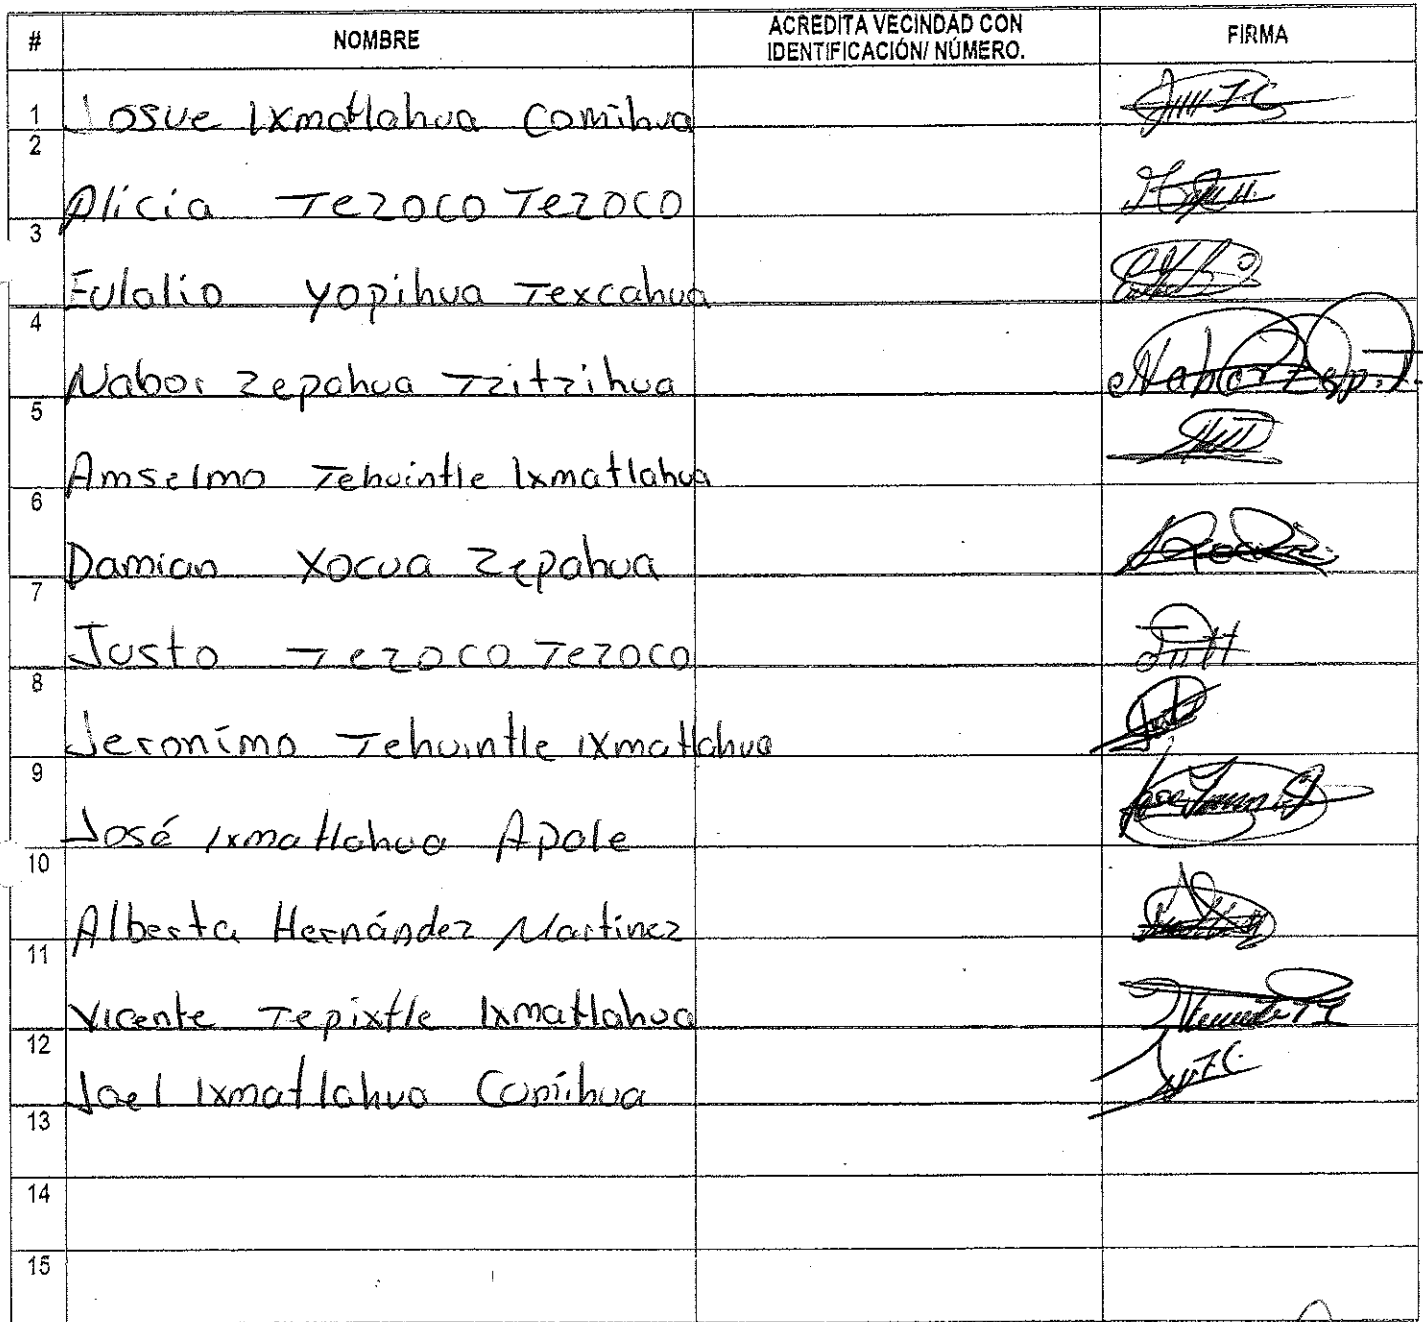 # NOMBRE ACREDITA VECINDAD CON IDENTIFICACIÓN/ NÚMERO. FIRMA
1 Josue Ixmatlahua Comihua
2 Alicia Tezoco Tezoco
3 Eulalio Yopihua Texcahua
4 Nabor Zepahua Tzitzihua Nabor Zep. T.
5 Amselmo Tehuintle Ixmatlahua
6 Damian Xocua Zepahua
7 Justo Tezoco Tezoco
8 Jeronímo Tehuintle Ixmatlahua
9 José Ixmatlahua Apale
10 Alberta Hernández Martinez
11 Vicente Tepixtle Ixmatlahua
12 Joel Ixmatlahua
13
14
15